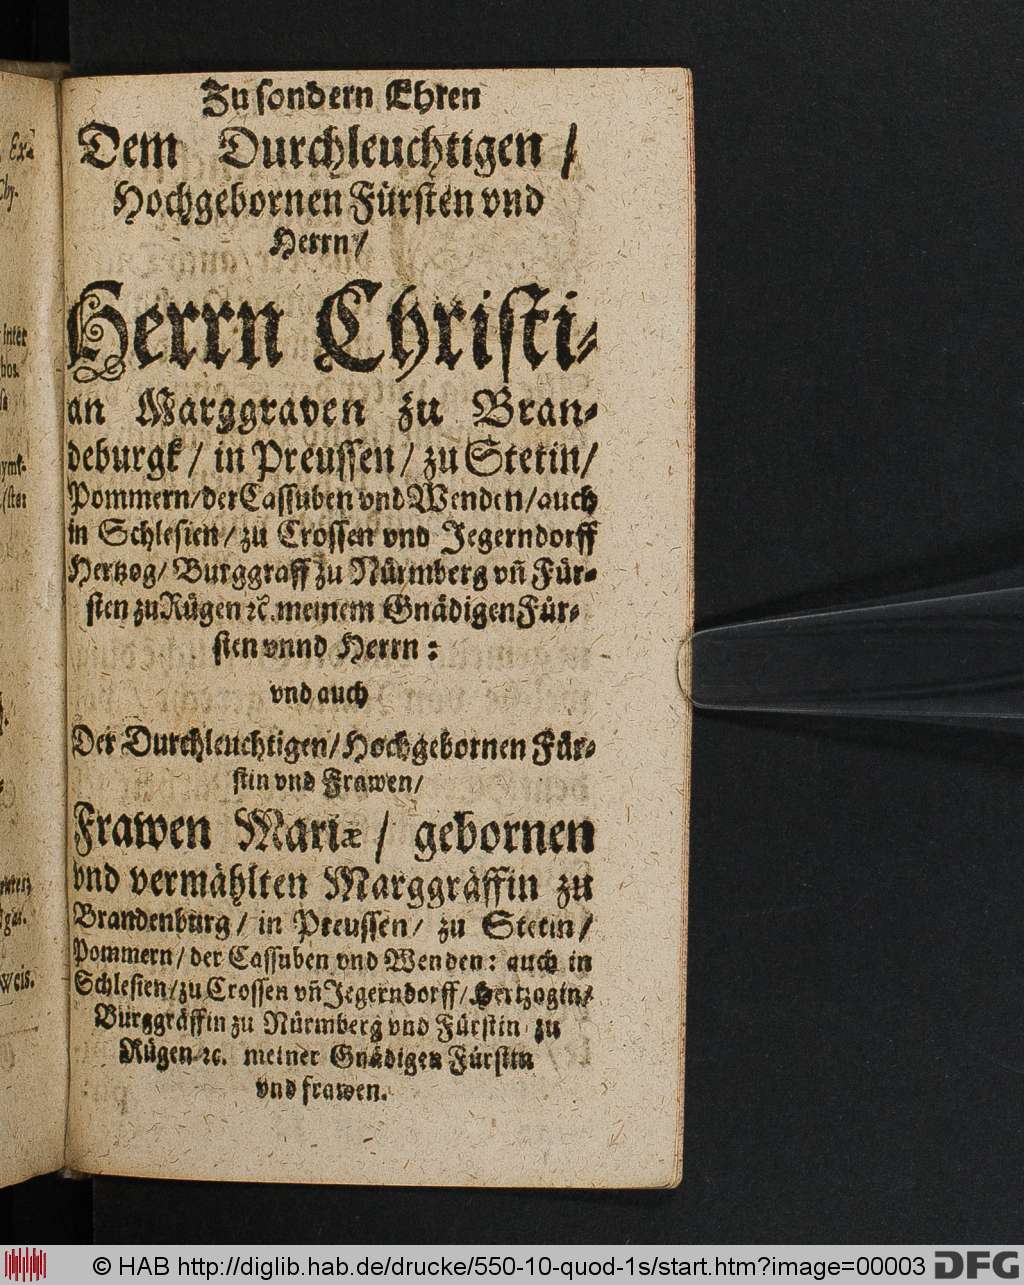 Zu sondern Ehren
Dem Durchleuchtigen /
Hochgebornen Fürsten vnd
Herrn /
Herrn Christi-
an Marggraven zu Bran-
deburgk / in Preussen / zu Stetin /
Pommern / der Cassuben vnd Wenden / auch
in Schlesien / zu Crossen vnd Jegerndorff
Hertzog / Burggraff zu Nürmberg vn̄ Für-
sten zu Rügen ꝛc. meinem Gnädigen Für-
sten vnnd Herrn :
vnd auch
Der Durchleuchtigen / Hochgebornen Für-
stin vnd Frawen /
Frawen Mariæ / gebornen
vnd vermählten Marggräffin zu
Brandenburg / in Preussen / zu Stetin /
Pommern / der Cassuben vnd Wenden : auch in
Schlesien / zu Crossen vn̄ Jegerndorff / Hertzogin /
Burggräffin zu Nürmberg vnd Fürstin zu
Rügen ꝛc. meiner Gnädigen Fürstin
vnd frawen.
weis.
© HAB http://diglib.hab.de/drucke/550-10-quod-1s/start.htm?image=00003
DFG